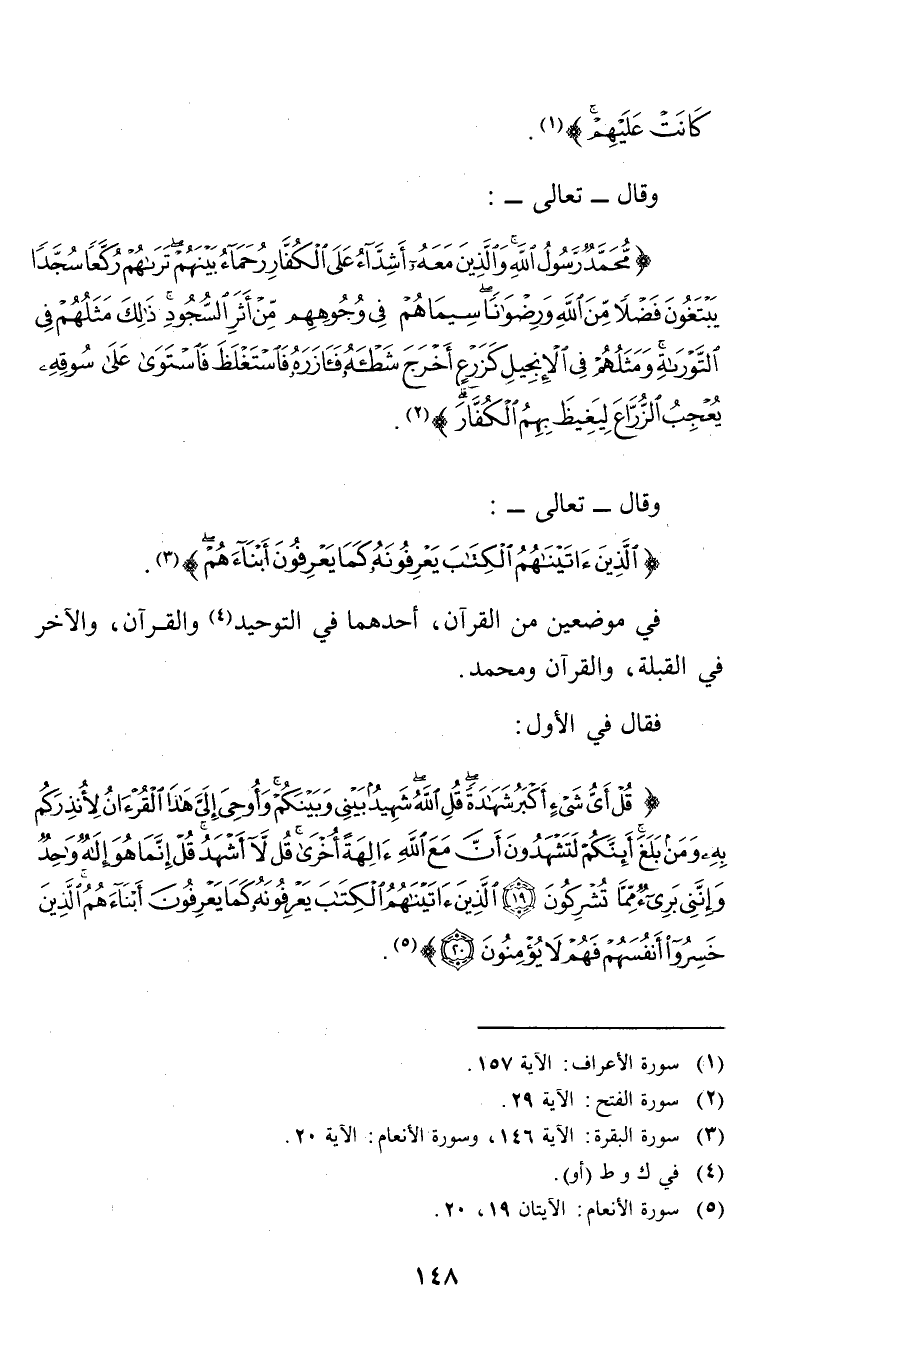 كَانَتْ عَلَيْهِمْ ۚ ﴾(١) .
وقال ــ تعالى ــ :
﴿ مُّحَمَّدٌ رَّسُولُ ٱللَّهِ ۚ وَٱلَّذِينَ مَعَهُۥٓ أَشِدَّآءُ عَلَى ٱلْكُفَّارِ رُحَمَآءُ بَيْنَهُمْ ۖ تَرَىٰهُمْ رُكَّعًا سُجَّدًا
يَبْتَغُونَ فَضْلًا مِّنَ ٱللَّهِ وَرِضْوَٰنًا ۖ سِيمَاهُمْ فِى وُجُوهِهِم مِّنْ أَثَرِ ٱلسُّجُودِ ۚ ذَٰلِكَ مَثَلُهُمْ فِى
ٱلتَّوْرَىٰةِ ۚ وَمَثَلُهُمْ فِى ٱلْإِنجِيلِ كَزَرْعٍ أَخْرَجَ شَطْـَٔهُۥ فَـَٔازَرَهُۥ فَٱسْتَغْلَظَ فَٱسْتَوَىٰ عَلَىٰ سُوقِهِۦ
يُعْجِبُ ٱلزُّرَّاعَ لِيَغِيظَ بِهِمُ ٱلْكُفَّارَ ۗ ﴾(٢) .
وقال ــ تعالى ــ :
﴿ ٱلَّذِينَ ءَاتَيْنَٰهُمُ ٱلْكِتَٰبَ يَعْرِفُونَهُۥ كَمَا يَعْرِفُونَ أَبْنَآءَهُمْ ۖ ﴾(٣) .
في موضعين من القرآن، أحدهما في التوحيد(٤) والقـرآن، والآخر
في القبلة، والقرآن ومحمد.
فقال في الأول:
﴿ قُلْ أَىُّ شَىْءٍ أَكْبَرُ شَهَٰدَةً ۖ قُلِ ٱللَّهُ ۖ شَهِيدٌۢ بَيْنِى وَبَيْنَكُمْ ۚ وَأُوحِىَ إِلَىَّ هَٰذَا ٱلْقُرْءَانُ لِأُنذِرَكُم
بِهِۦ وَمَنۢ بَلَغَ ۚ أَئِنَّكُمْ لَتَشْهَدُونَ أَنَّ مَعَ ٱللَّهِ ءَالِهَةً أُخْرَىٰ ۚ قُل لَّآ أَشْهَدُ ۚ قُلْ إِنَّمَا هُوَ إِلَٰهٌ وَٰحِدٌ
وَإِنَّنِى بَرِىٓءٌ مِّمَّا تُشْرِكُونَ ﴿١٩﴾ ٱلَّذِينَ ءَاتَيْنَٰهُمُ ٱلْكِتَٰبَ يَعْرِفُونَهُۥ كَمَا يَعْرِفُونَ أَبْنَآءَهُمُ ۘ ٱلَّذِينَ
خَسِرُوٓا۟ أَنفُسَهُمْ فَهُمْ لَا يُؤْمِنُونَ ﴿٢٠﴾ ﴾(٥) .
(١) سورة الأعراف: الآية ١٥٧.
(٢) سورة الفتح: الآية ٢٩.
(٣) سورة البقرة: الآية ١٤٦، وسورة الأنعام: الآية ٢٠.
(٤) في ك و ط (أو).
(٥) سورة الأنعام: الآيتان ١٩، ٢٠.
١٤٨